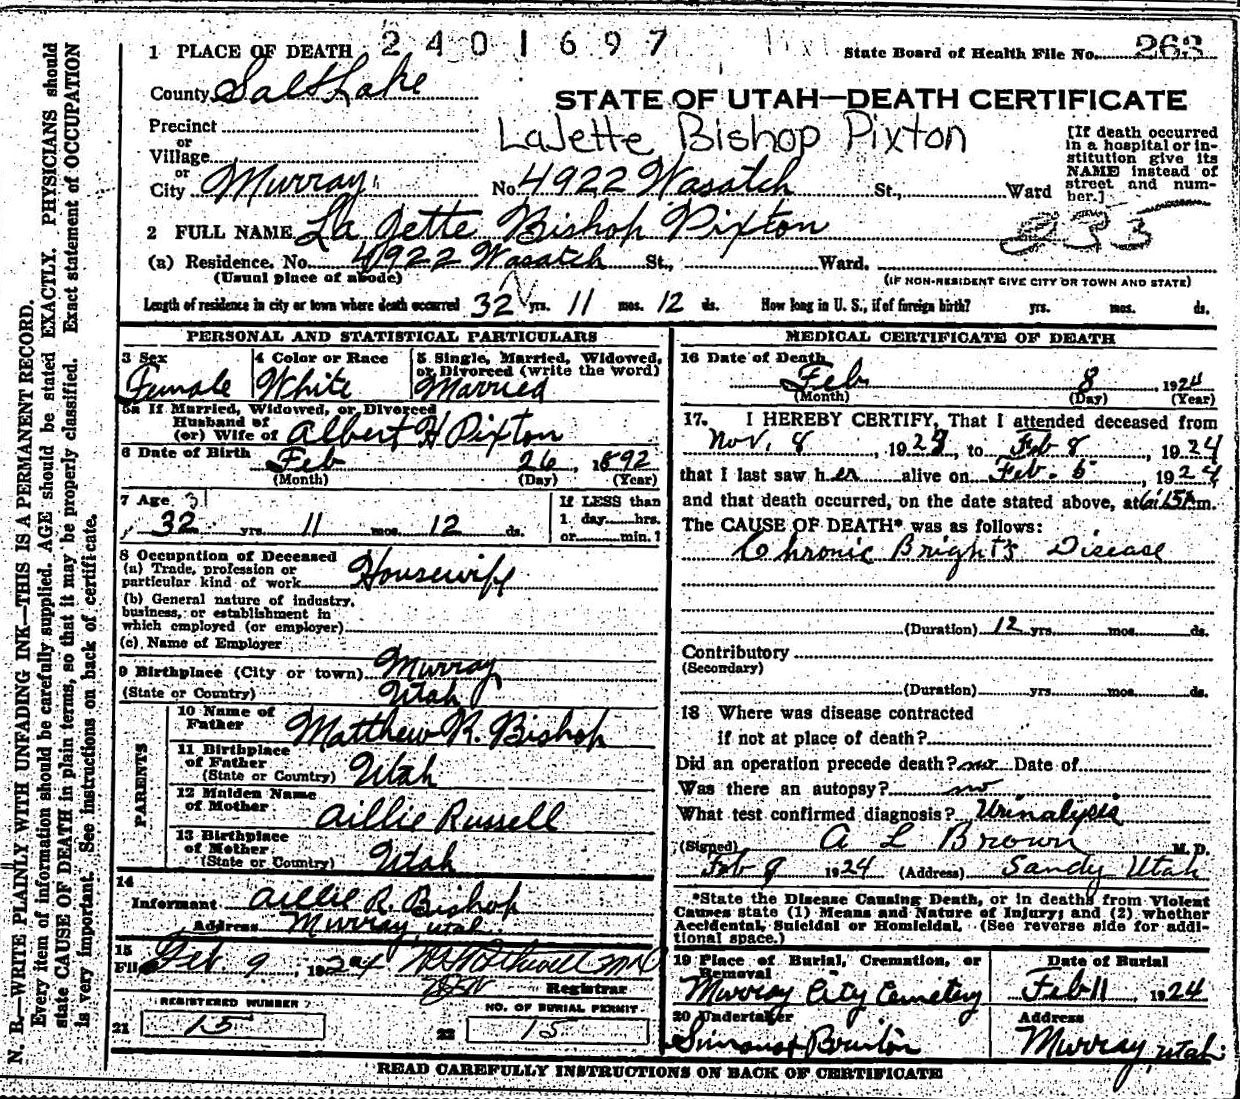 1 PLACE OF DEATH 2401697 State Board of Health File No. 263
County Salt Lake
STATE OF UTAH—DEATH CERTIFICATE
Precinct
or
Village
or
City Murray No. 4922 Wasatch St., Ward
LaJette Bishop Pixton
[If death occurred
in a hospital or in-
stitution give its
NAME instead of
street and num-
ber.]
2 FULL NAME La Jette Bishop Pixton
(a) Residence. No. 4922 Wasatch St., Ward.
(Usual place of abode) (IF NON-RESIDENT GIVE CITY OR TOWN AND STATE)
Length of residence in city or town where death occurred 32 yrs. 11 mos. 12 ds. How long in U. S., if of foreign birth? yrs. mos. ds.
PERSONAL AND STATISTICAL PARTICULARS
3 Sex 4 Color or Race 5 Single, Married, Widowed,
or Divorced (write the word)
Female White Married
5a If Married, Widowed, or Divorced
Husband of
(or) Wife of Albert H Pixton
6 Date of Birth Feb 26, 1892
(Month) (Day) (Year)
7 Age 31
32 yrs. 11 mos. 12 ds.
If LESS than
1 day......hrs.
or......min.?
8 Occupation of Deceased
(a) Trade, profession or
particular kind of work Housewife
(b) General nature of industry,
business, or establishment in
which employed (or employer)
(c) Name of Employer
9 Birthplace (City or town) Murray
(State or Country) Utah
PARENTS
10 Name of
Father Matthew R. Bishop
11 Birthplace
of Father
(State or Country) Utah
12 Maiden Name
of Mother Aillie Russell
13 Birthplace
of Mother
(State or Country) Utah
14
Informant Aillie R. Bishop
Address Murray, Utah
15
Filed Feb. 9, 1924
Registrar
REGISTERED NUMBER
21 15
NO. OF BURIAL PERMIT
22 15
MEDICAL CERTIFICATE OF DEATH
16 Date of Death
Feb 8, 1924
(Month) (Day) (Year)
17. I HEREBY CERTIFY, That I attended deceased from
Nov. 8, 192 , to Feb 8, 1924
that I last saw her alive on Feb. 5, 1924
and that death occurred, on the date stated above, at 6:15 A m.
The CAUSE OF DEATH* was as follows:
Chronic Bright's Disease
(Duration) 12 yrs. mos. ds.
Contributory
(Secondary)
(Duration) yrs. mos. ds.
18 Where was disease contracted
if not at place of death?
Did an operation precede death? no Date of
Was there an autopsy? no
What test confirmed diagnosis? Urinalysis
(Signed) A L Brown M. D.
Feb 9 1924 (Address) Sandy Utah
*State the Disease Causing Death, or in deaths from Violent
Causes state (1) Means and Nature of Injury; and (2) whether
Accidental, Suicidal or Homicidal. (See reverse side for addi-
tional space.)
19 Place of Burial, Cremation, or
Removal
Murray City Cemetery
Date of Burial
Feb 11, 1924
20 Undertaker
Address
Murray, Utah
READ CAREFULLY INSTRUCTIONS ON BACK OF CERTIFICATE
N. B.—WRITE PLAINLY WITH UNFADING INK—THIS IS A PERMANENT RECORD.
Every item of information should be carefully supplied. AGE should be stated EXACTLY. PHYSICIANS should
state CAUSE OF DEATH in plain terms, so that it may be properly classified. Exact statement of OCCUPATION
is very important. See instructions on back of certificate.